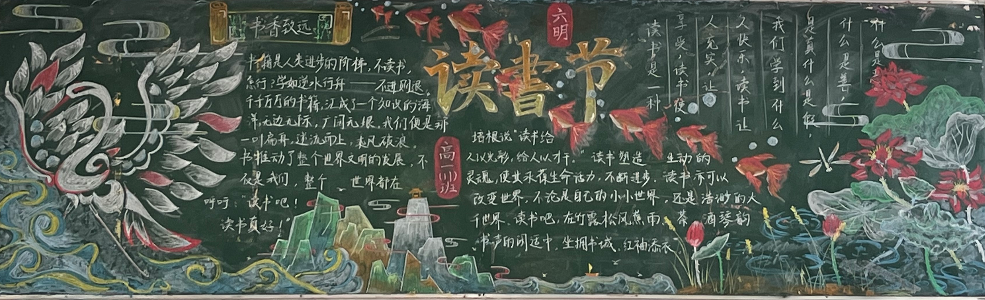 书香致远
书籍是人类进步的阶梯，不读书，
急行？学如逆水行舟 不进则退，
千千万万的书籍，汇成了一个知识的海
洋，无边无际，广阔无垠，我们便是那
一叶扁舟，逆流而上，乘风破浪，
书推动了整个世界文明的发展，不
仅是我们，整个 世界都在
呼吁：“读书吧！
读书真好！”
读书节
高一 班
六明
培根说 读书给
人以光彩，给人以才干， 读书塑造 生动的
灵魂，使其永葆生命活力，不断进步，读书亦可以
改变世界，不论是自己的小小世界，还是浩渺的人
千世界，读书吧，在竹露松风蕉雨 茶 酒琴韵
书声的闲适中，坐拥书城，红袖添衣
什么是
什么是善
是真什么是
我们学到什么
久快乐，读书让
人充实，让
享受，读书使
读书是一种